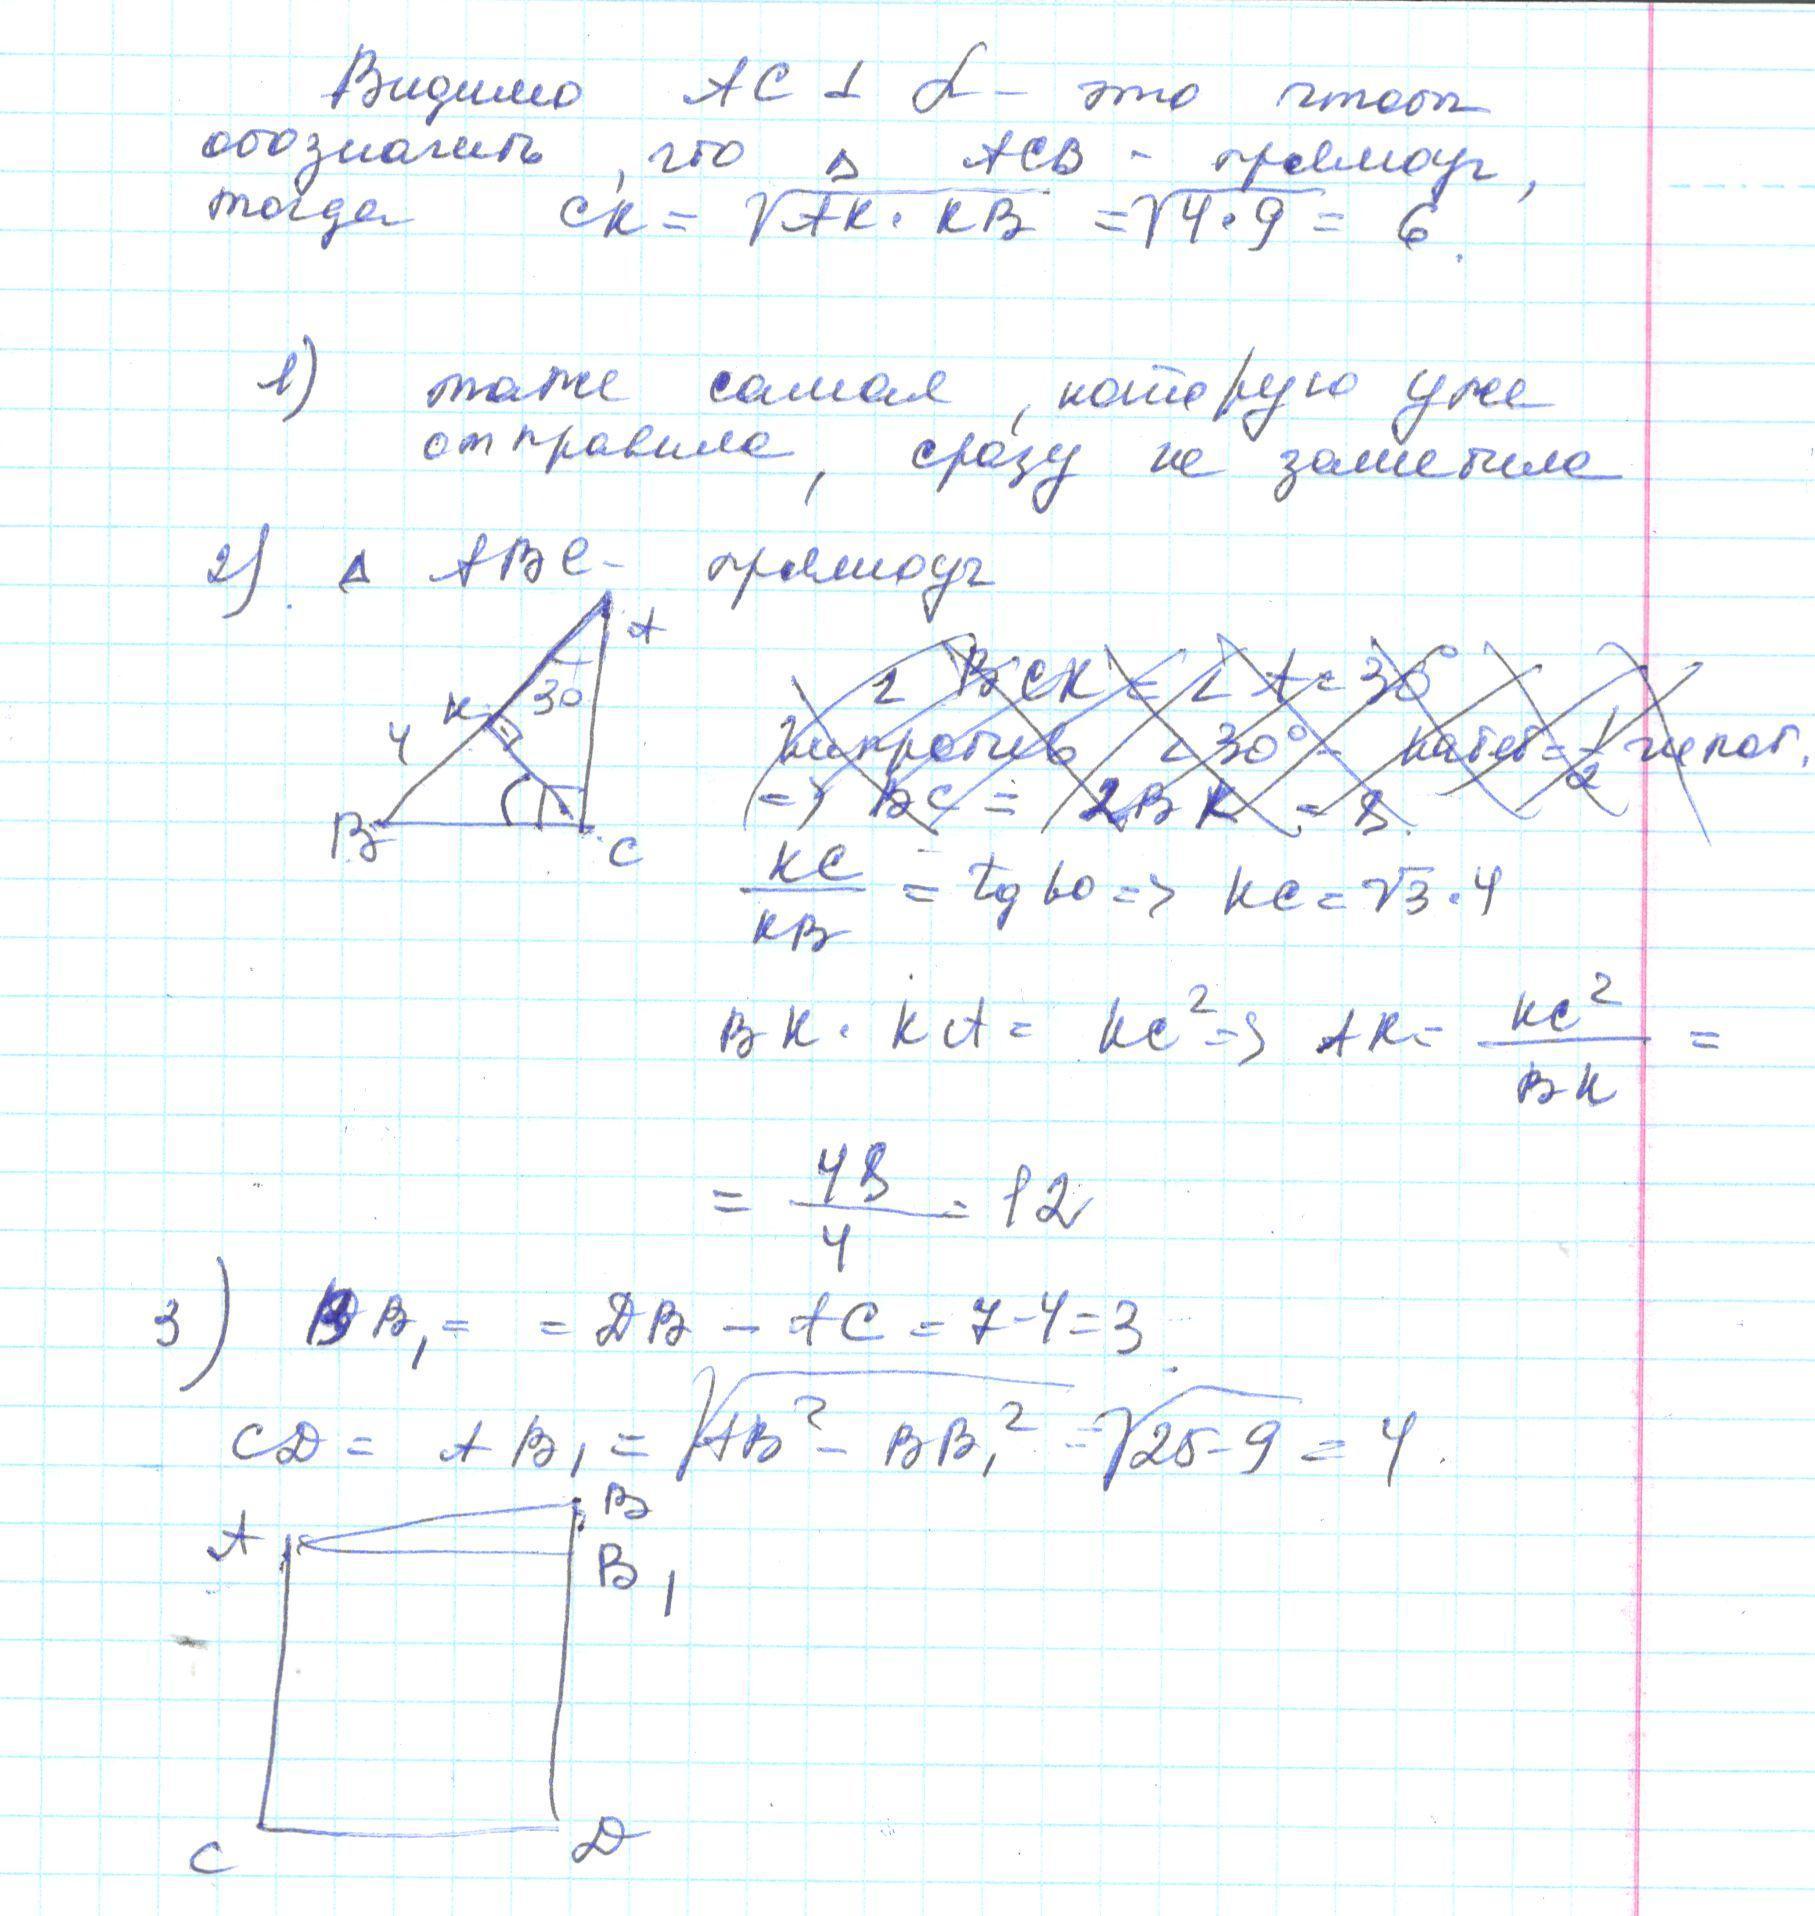 Видимо AC ⊥ α - это чтоб
обозначить, что Δ ACB - прямоуг,
тогда CK = √AK · KB = √4·9 = 6.
1) таже самая, которую уже
отправила, сразу не заметила
2) Δ ABC - прямоуг
A
30
K
4
B
C
∠ BCK = ∠ A = 30°
напротив ∠ 30° - катет = 1/2 гипот.
=> BC = 2BK = 8.
KC/KB = tg 60 => KC = √3 · 4
BK · KA = KC² => AK = KC²/BK =
= 48/4 = 12
3) BB₁ = = DB - AC = 7-4=3.
CD = AB₁ = √AB² - BB₁² = √25-9 = 4.
B
A
B₁
C
D